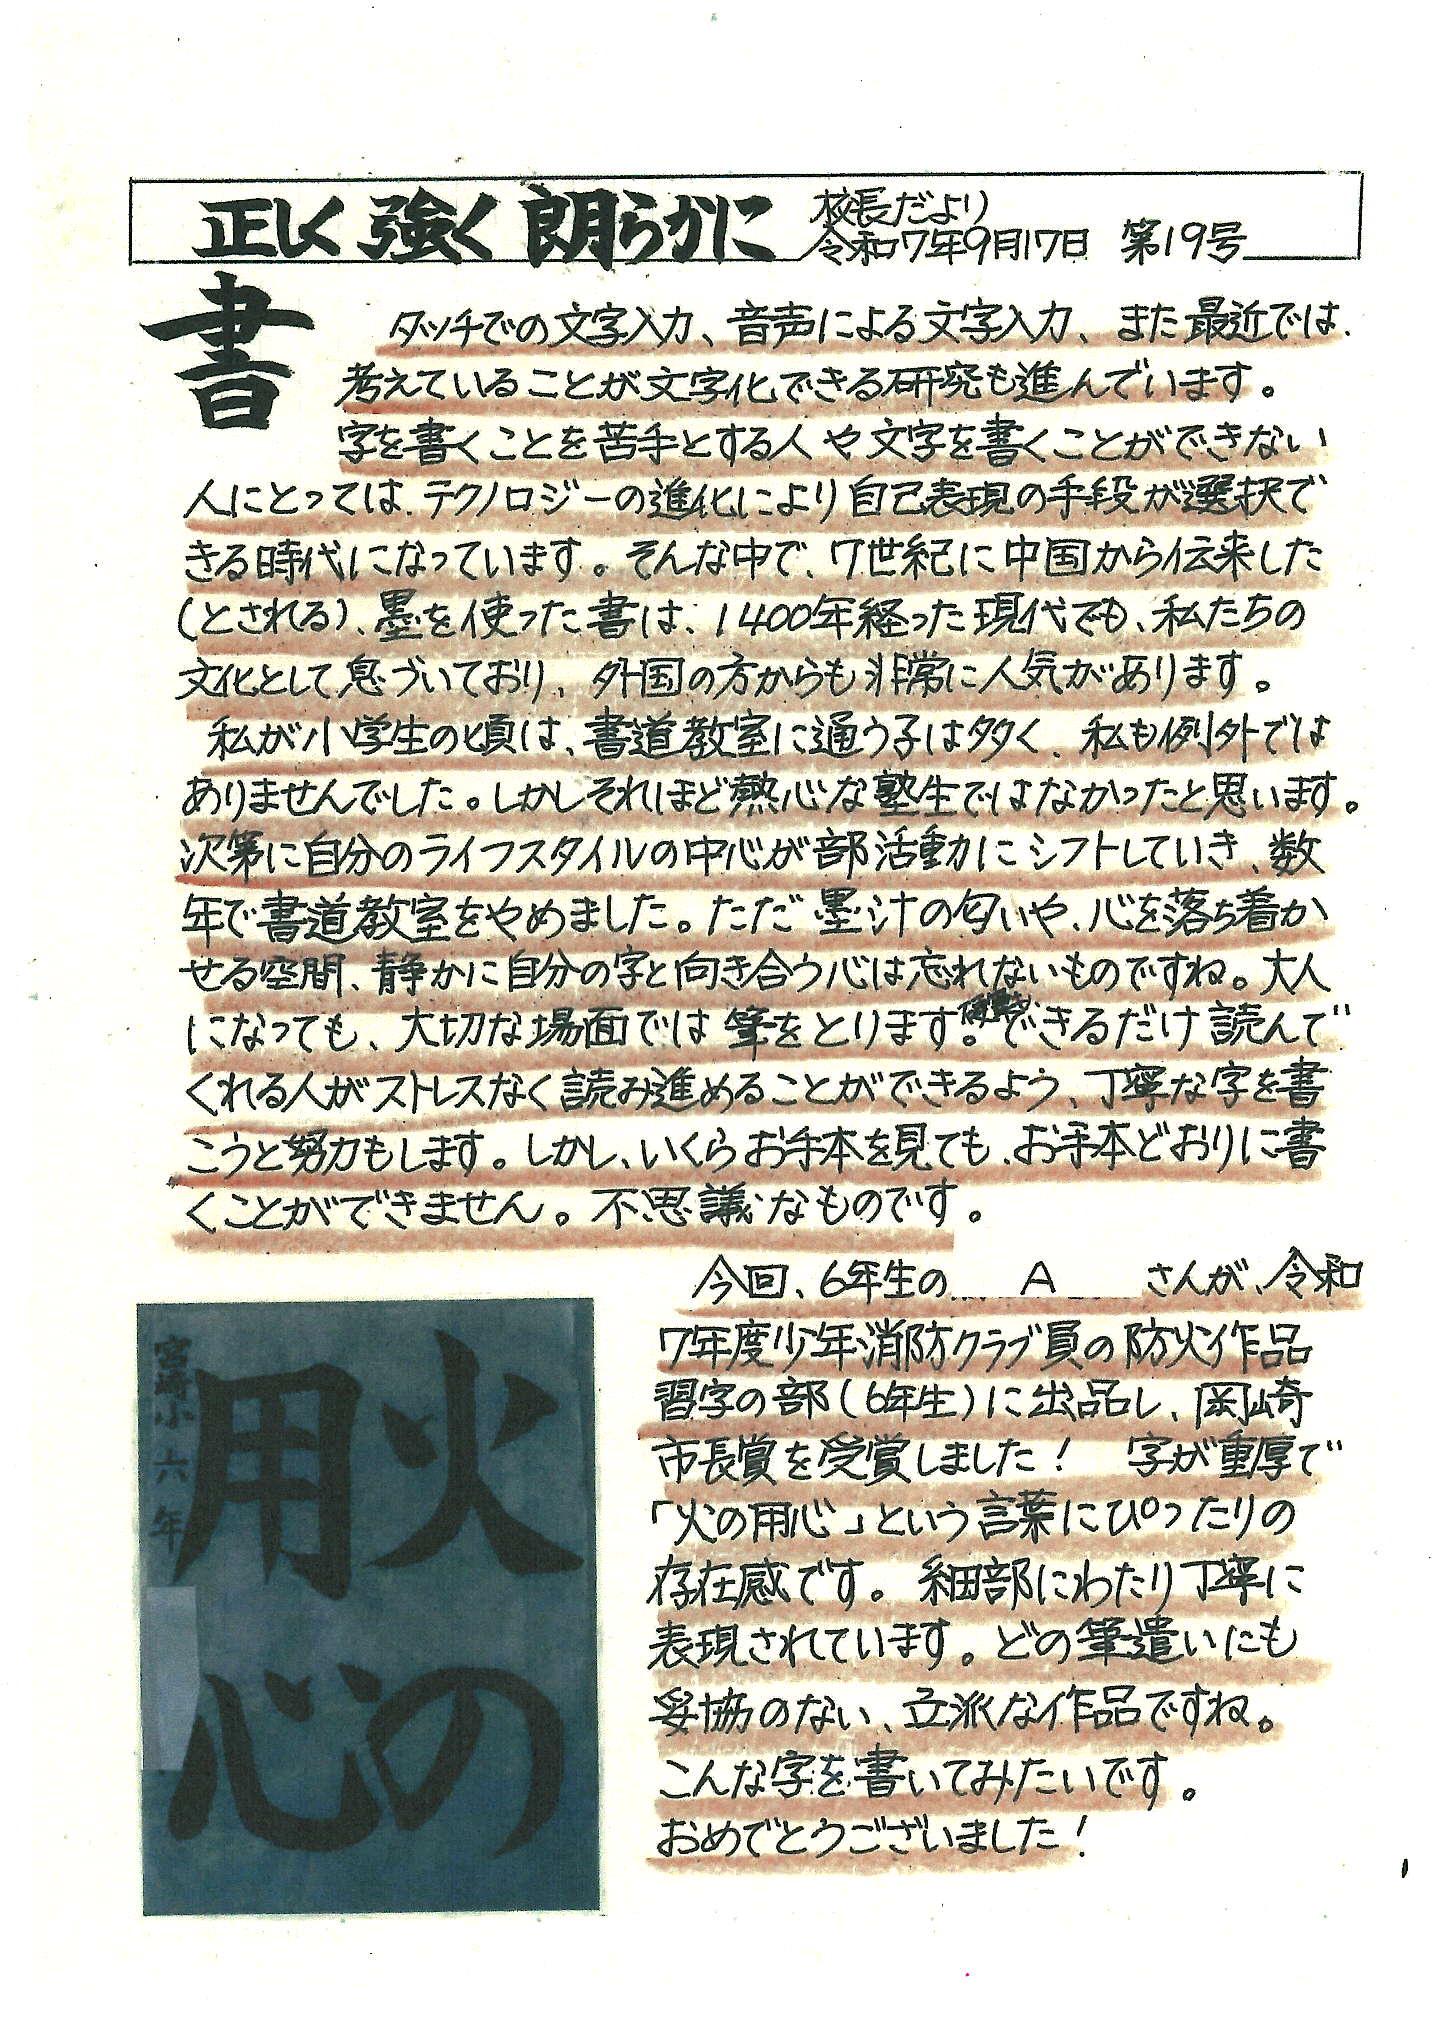 正しく 強く 朗らかに
校長だより
令和7年9月17日 第19号
書
タッチでの文字入力、音声による文字入力、また最近では、
考えていることが文字化できる研究も進んでいます。
字を書くことを苦手とする人や文字を書くことができない
人にとっては、テクノロジーの進化により自己表現の手段が選択で
きる時代になっています。そんな中で、7世紀に中国から伝来した
(とされる)、墨を使った書は、1400年経った現代でも、私たちの
文化として息づいており、外国の方からも非常に人気があります。
私が小学生の頃は、書道教室に通う子は多く、私も例外では
ありませんでした。しかしそれほど熱心な塾生ではなかったと思います。
次第に自分のライフスタイルの中心が部活動にシフトしていき、数
年で書道教室をやめました。ただ墨汁の匂いや、心を落ち着か
せる空間、静かに自分の字と向き合う心は忘れないものですね。大人
になっても、大切な場面では筆をとります。できるだけ読んで
くれる人がストレスなく読み進めることができるよう、丁寧な字を書
こうと努力もします。しかし、いくらお手本を見ても、お手本どおりに書
くことができません。不思議なものです。
今回、6年生の A さんが、令和
7年度少年消防クラブ員の防火作品
習字の部(6年生)に出品し、岡崎
市長賞を受賞しました! 字が重厚で
「火の用心」という言葉にぴったりの
存在感です。細部にわたり丁寧に
表現されています。どの筆遣いにも
妥協のない、立派な作品ですね。
こんな字を書いてみたいです。
おめでとうございました!
火の
用心
宮崎小六年